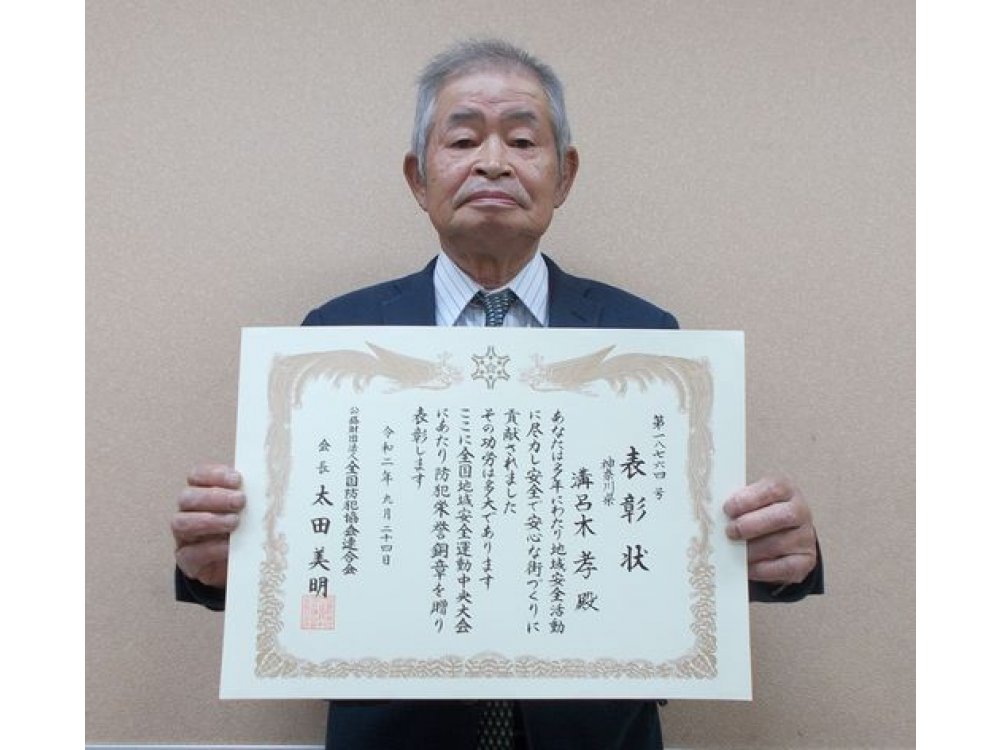 第一八七六四号
表彰状
神奈川県
溝呂木孝殿
あなたは多年にわたり地域安全活動
に尽力し安全で安心な街づくりに
貢献されました
その功労は多大であります
ここに全国地域安全運動中央大会
にあたり防犯栄誉銅章を贈り
表彰します
令和二年九月二十四日
公益財団法人全国防犯協会連合会
会長太田美明